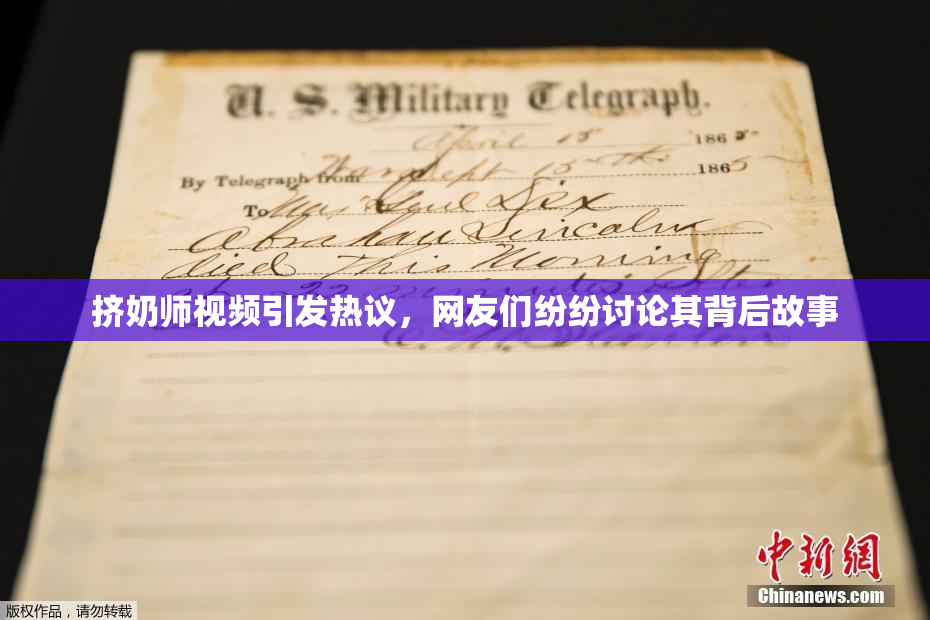 U. S. Military Telegraph.
April 15 1865
By Telegraph from War Dept 15th 1865
To Maj Genl Dix
Abraham Lincoln
died This Morning
at 22 minutes after
挤奶师视频引发热议，网友们纷纷讨论其背后故事
E. M. Stanton
中新网
Chinanews.com
版权作品，请勿转载